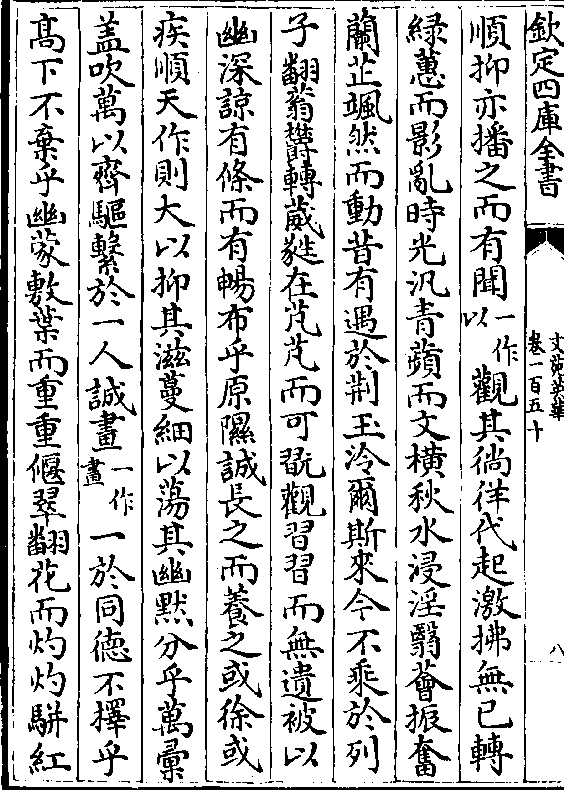 欽定四庫全書
文苑英華
卷一百五十
八
順抑亦播之而有聞一作以觀其徜徉代起激拂無已轉
綠蕙而影亂時光汎青蘋而文橫秋水浸淫翳薈振奮
蘭芷颯然而動昔有遇於荆王泠爾斯來今不乘於列
子翻蓊欝轉葳蕤在芃芃而可翫觀習習而無遺被以
幽深諒有條而有暢布乎原隰誠長之而養之或徐或
疾順天作則大以抑其滋蔓細以蕩其幽黙分乎萬彚
盖吹萬以齊驅繫於一人誠畫一作畫一於同德不擇乎
髙下不棄乎幽蒙敷葉而重重偃翠翻花而灼灼駢紅